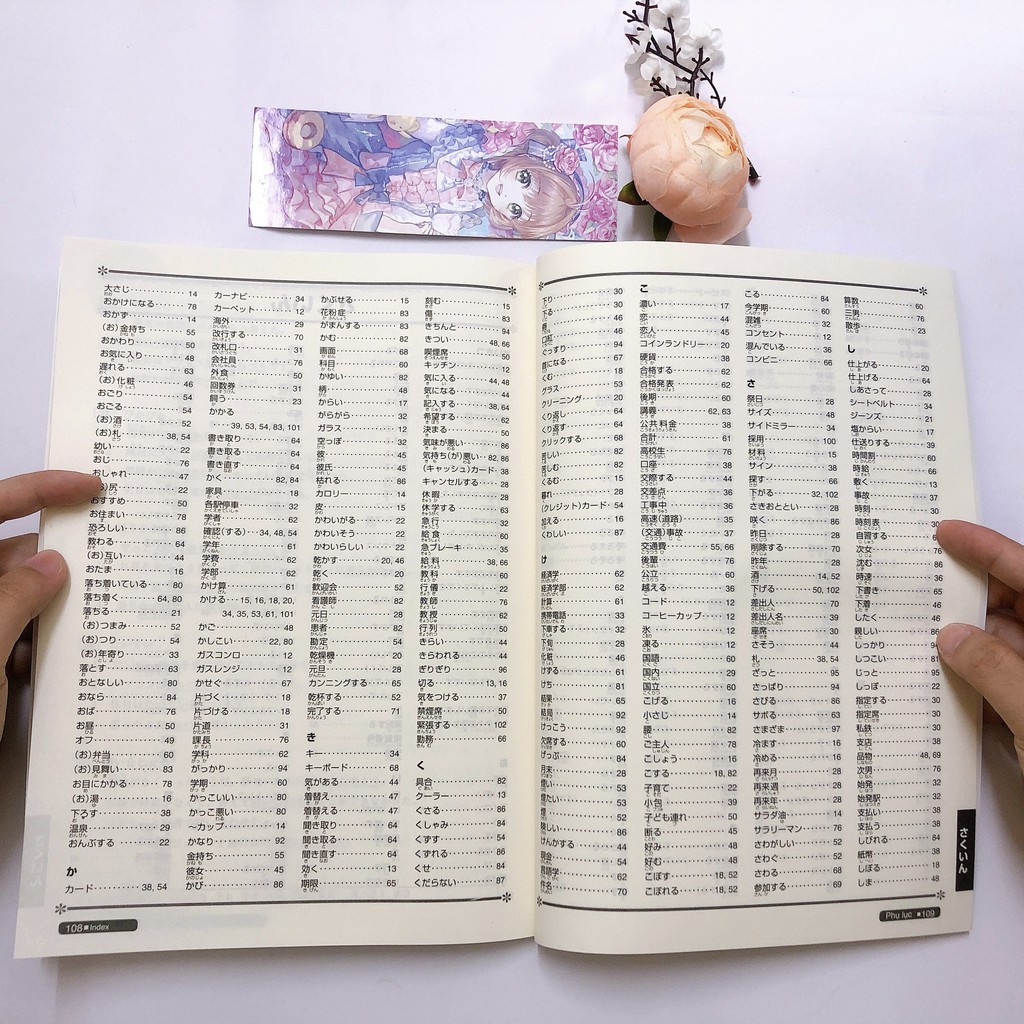 大さじ 14
おかけになる 78
おかず 14
(お)金持ち 55
おかわり 50
お気に入り 48
遅れる 63
(お)化粧 46
おごり 54
おごる 54
(お)酒 52
(お)札 38, 54
幼い 22
おじ 76
おしゃれ 47
お)尻 22
おすすめ 50
お住まい 78
恐ろしい 86
教わる 64
(お)互い 44
おたま 16
落ち着いている 80
落ち着く 64, 80
落ちる 21
(お)つまみ 52
(お)つり 54
(お)年寄り 33
落とす 63
おとなしい 80
おなら 84
おば 76
お昼 50
オフ 49
(お)弁当 60
(お)見舞い 83
お目にかかる 78
(お)湯 16
下ろす 38
温泉 29
おんぶする 22
か
カード 38, 54
カーナビ 34
カーペット 12
海外 29
改行する 70
改札口 31
会社員 76
外食 50
回数券 31
飼う 23
かかる
39, 53, 54, 83, 101
書き取り 64
書き取る 64
書き直す 64
かく 82, 84
家具 18
各駅停車 32
学者 62
確認(する) 34, 48, 54
学年 61
学費 62
学部 62
かけ算 61
かける 15, 16, 18, 20,
34, 35, 53, 61, 101
かご 48
かしこい 22, 80
ガスコンロ 12
ガスレンジ 12
かせぐ 67
片づく 18
片づける 18
片道 31
課長 76
学科 62
がっかり 94
学期 60
かっこいい 80
かっこ悪い 80
～カップ 14
かなり 92
金持ち 55
彼女 45
かび 86
かぶせる 15
花粉症 83
がまんする 83
かむ 82
画面 68
科目 60
かゆい 82
柄 48
からい 17
がらがら 32
ガラス 12
空っぽ 32
彼 45
彼氏 45
枯れる 86
カロリー 14
皮 15
かわいがる 22
かわいそう 22
かわいらしい 22
乾かす 20, 46
乾く 20
歓迎会 52
看護師 82
元日 28
患者 82
勘定 54
乾燥機 20
元旦 28
カンニングする 65
乾杯する 52
完了する 71
き
キー 34
キーボード 68
気がある 44
着替え 47
着替える 47
聞き取り 64
聞き取る 64
聞き直す 64
効く 13
期限 65
刻む 15
傷 83
きちんと 94
きつい 48, 66
喫煙席 50
キッチン 12
気に入る 44, 48
気になる 44
記入する 38, 64
希望する 62
決まる 50
気味が悪い 86
気持ち(が)悪い 82, 86
(キャッシュ)カード 38
キャンセルする 28
休暇 28
休学する 63
急行 32
給食 60
急ブレーキ 35
給料 38, 66
教科 60
行儀 22
教師 76
教授 62
行列 50
きらい 44
きらわれる 44
ぎりぎり 96
切る 13, 16
気をつける 37
禁煙席 50
緊張する 102
勤務 66
く
具合 82
クーラー 13
くさる 86
くしゃみ 84
くずす 54
くずれる 86
くせ 84
くだらない 87
108 ■ Index
下り 30
下る 30
口紅 46
ぐっすり 94
くむ 18
グラス 53
クリーニング 20
くり返し 64
くり返す 64
クリックする 68
くるむ 15
暮れ 28
(クレジット)カード 54
加える 16
くわしい 87
け
経済学 62
経済学部 62
計算 61
携帯電話 33
下車する 32
下旬 28
化粧 46
けずる 61
けち 81
結果 65
結局 92
けっこう 92
欠席する 60
げっぷ 84
月末 28
けんかする 44
現金 54
言語学 62
件名 70
こ
濃い 17
恋 44
恋人 45
コインランドリー 20
硬貨 38
合格する 62
合格発表 62
後期 60
講義 62, 63
公共料金 38
合計 61
高校生 76
口座 38
交際する 44
交差点 36
工事中 36
高速(道路) 35
(交通)事故 37
交通費 55, 66
後輩 76
公立 60
越える 36
コード 12
コーヒーカップ 12
氷 12
凍る 12
国語 60
国内 29
国立 60
こげる 16
小さじ 14
腰 82
ご主人 78
こしょう 16
こする 18, 82
子育て 22
小包 39
子ども連れ 50
断る 45
好み 48
好む 48
こぼす 18, 52
こぼれる 18, 52
こる 84
今学期 60
混雑 32
コンセント 12
混んでいる 36
コンビニ 66
さ
祭日 28
サイズ 48
サイドミラー 34
採用 100
材料 15
サイン 38
探す 66
下がる 32, 102
さきおととい 28
咲く 86
昨日 28
削除する 70
昨年 28
酒 14, 52
下げる 50, 102
差出人 70
差出人名 39
座席 30
さそう 44
札 38, 54
ざっと 95
さっぱり 94
さびる 86
サボる 63
さまざま 97
冷ます 16
冷める 16
再来月 28
再来週 28
再来年 28
サラダ油 14
サラリーマン 76
さわがしい 52
さわぐ 52
さわる 68
参加する 69
算数 60
三男 76
散歩 23
し
仕上がる 20
仕上げる 64
しあさって 28
シートベルト 34
ジーンズ 21
塩からい 17
仕送りする 39
時間割 60
時給 66
敷く 13
事故 37
時刻 30
時刻表
自習する
次女 76
沈む 86
時速 36
下書き 65
下着 46
したく 46
親しい 86
しっかり 94
しつこい 81
じっと 95
しっぽ 22
指定する 30
指定席 30
私鉄 30
支店 38
品物 48, 69
次男 76
始発 32
始発駅 32
支払い 38
支払う 38
しびれる 84
紙幣 38
しぼる 18
しま 48
さくいん
Phụ lục ■ 109